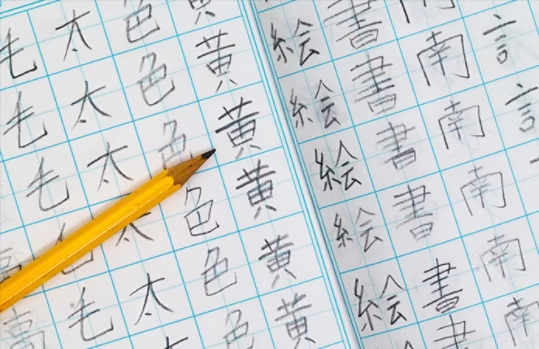 言言
南南南南南
書書書書書書
絵絵絵絵絵
黄黄黄黄黄黄
色色色色色色
太太太太太
毛毛毛毛毛